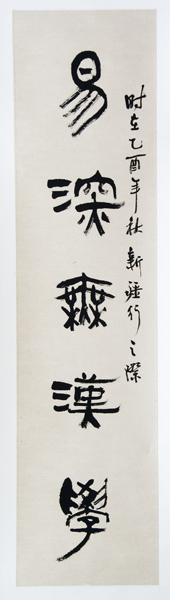 易深無漢學
时在乙酉年秋新疆行之際